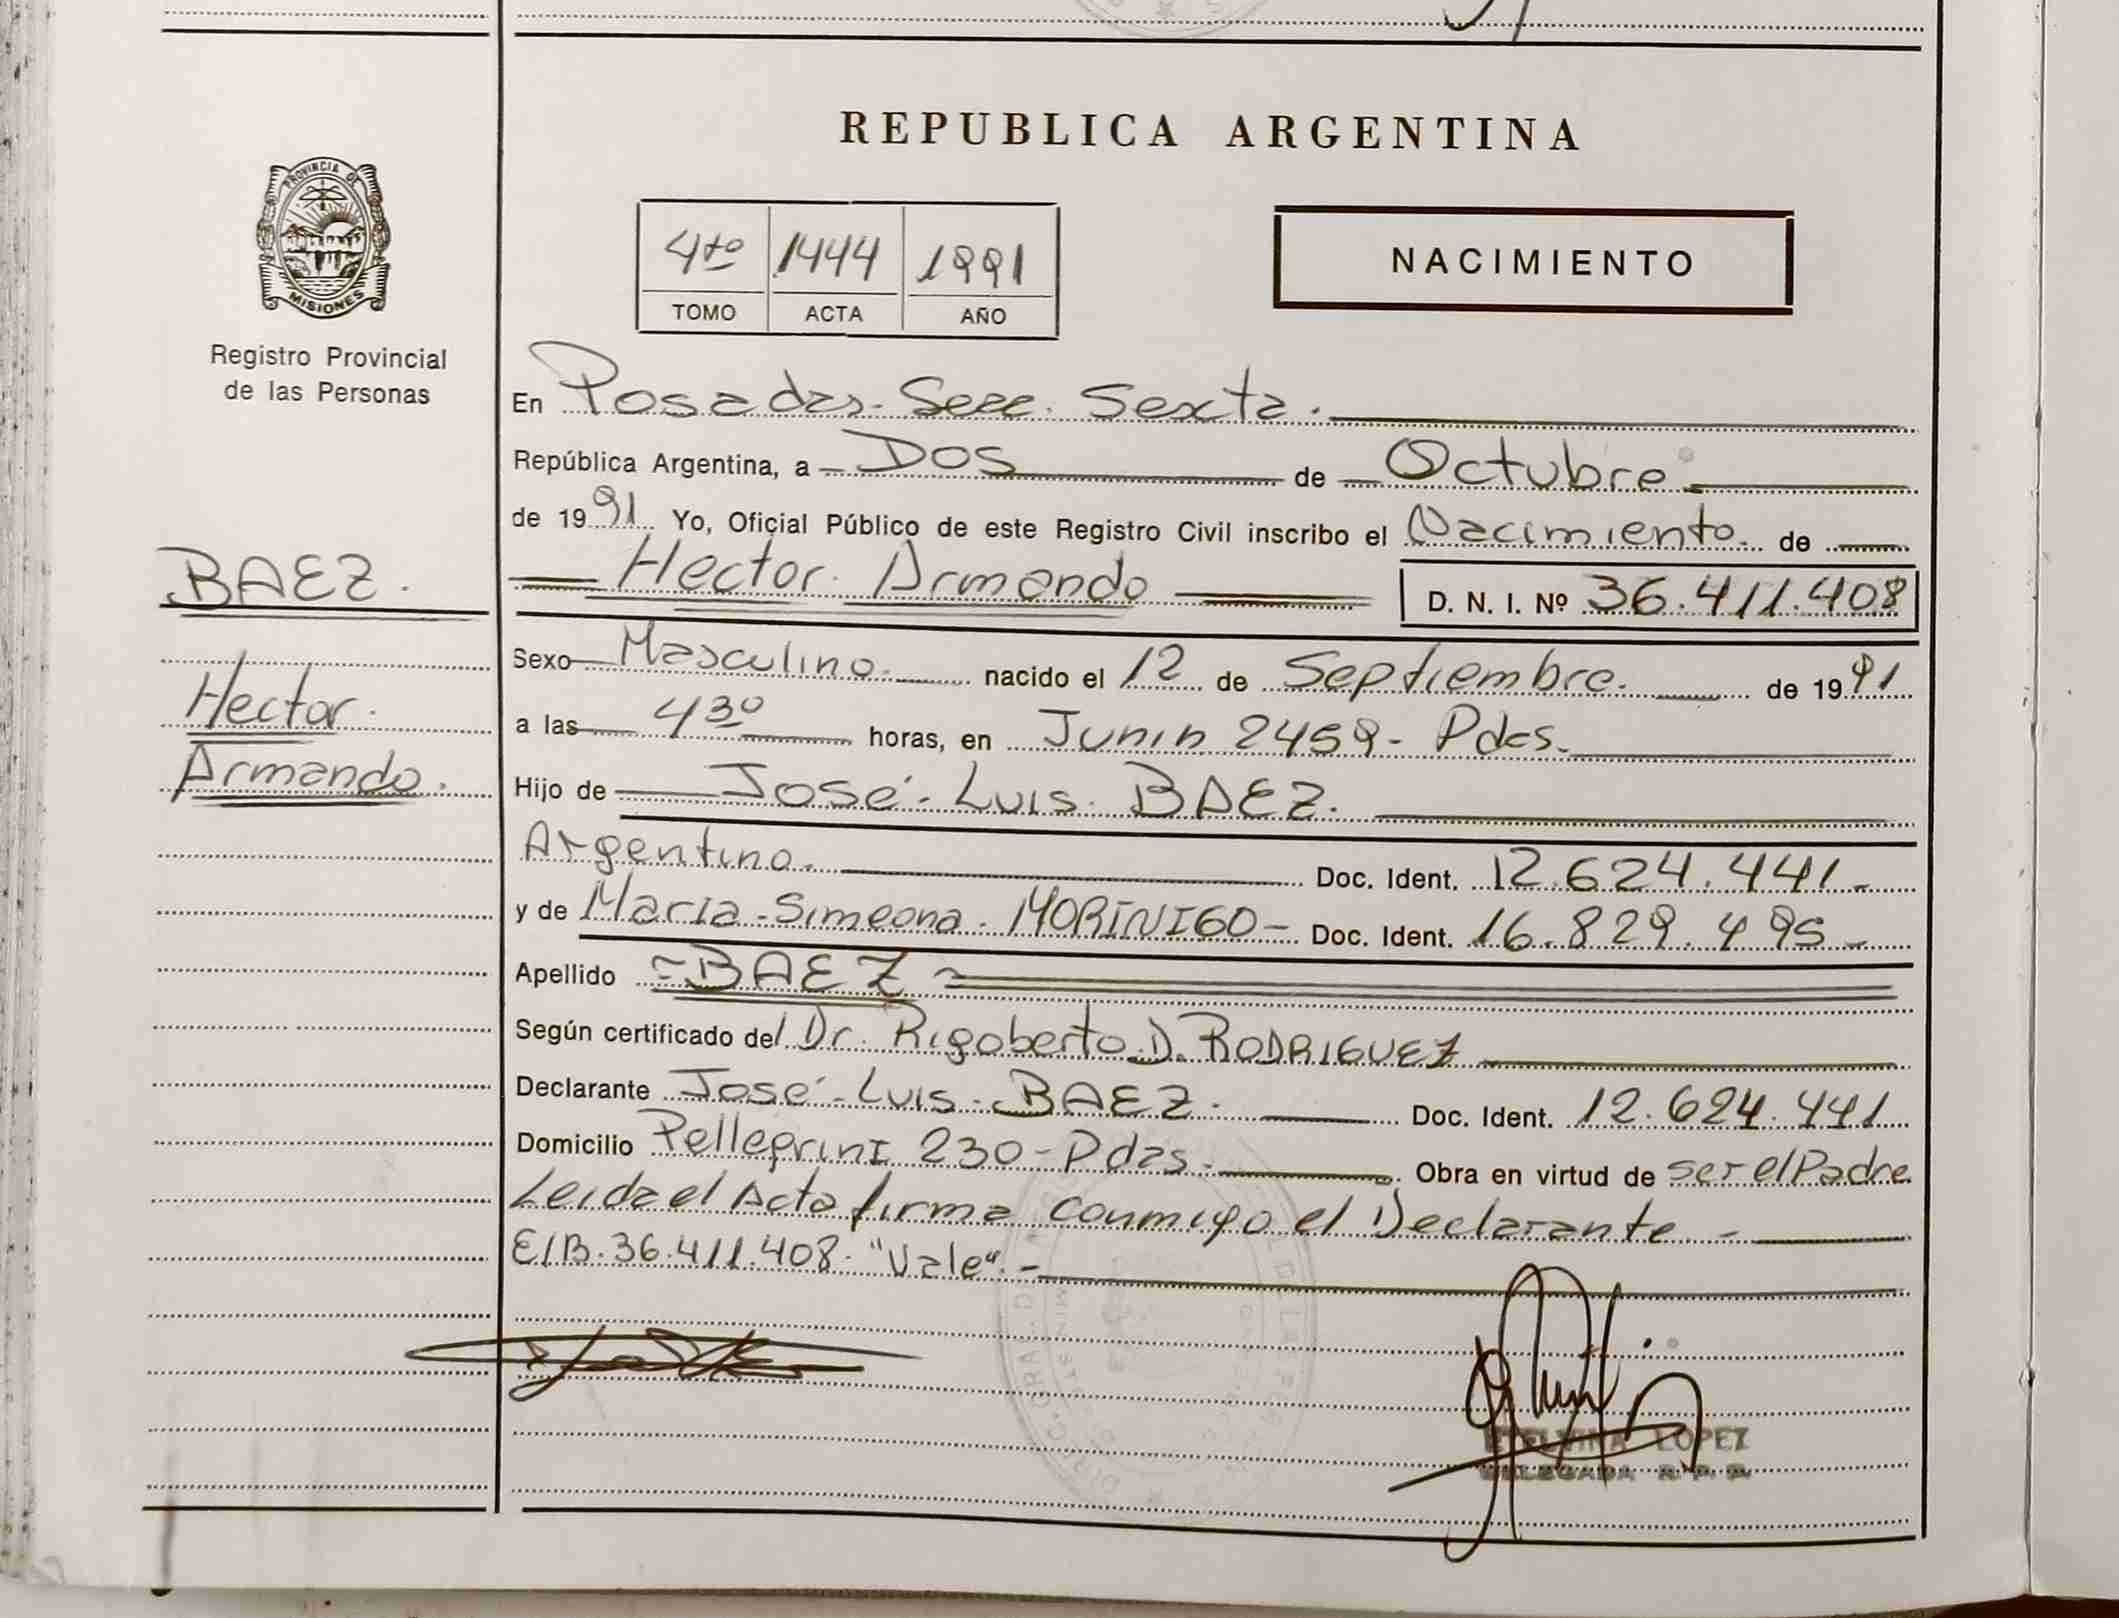 REPUBLICA ARGENTINA
PROVINCIA DE
MISIONES
Registro Provincial
de las Personas
4to 1444 1991
TOMO ACTA AÑO
NACIMIENTO
En Posadas. Secc. Sexta.
República Argentina, a Dos de Octubre
de 1991 Yo, Oficial Público de este Registro Civil inscribo el Nacimiento de
BAEZ.
Hector Armando D. N. I. Nº 36.411.408
Hector
Armando.
Sexo Masculino. nacido el 12 de Septiembre. de 1991
a las 430 horas, en Junin 2459 - Pdas.
Hijo de José Luis BAEZ.
Argentino. Doc. Ident. 12.624.441 -
y de María Simeona MORINIGO - Doc. Ident. 16.829.495 -
Apellido - BAEZ -
Según certificado del Dr. Rigoberto D. RODRIGUEZ
Declarante José Luis BAEZ. Doc. Ident. 12.624.441
Domicilio Pellegrini 230 - Pdas. Obra en virtud de ser el Padre
Leida el Acta firma conmigo el Declarante -
E/B. 36.411.408. "Vale". -
ETELVINA LOPEZ
DELEGADA R. P. P.